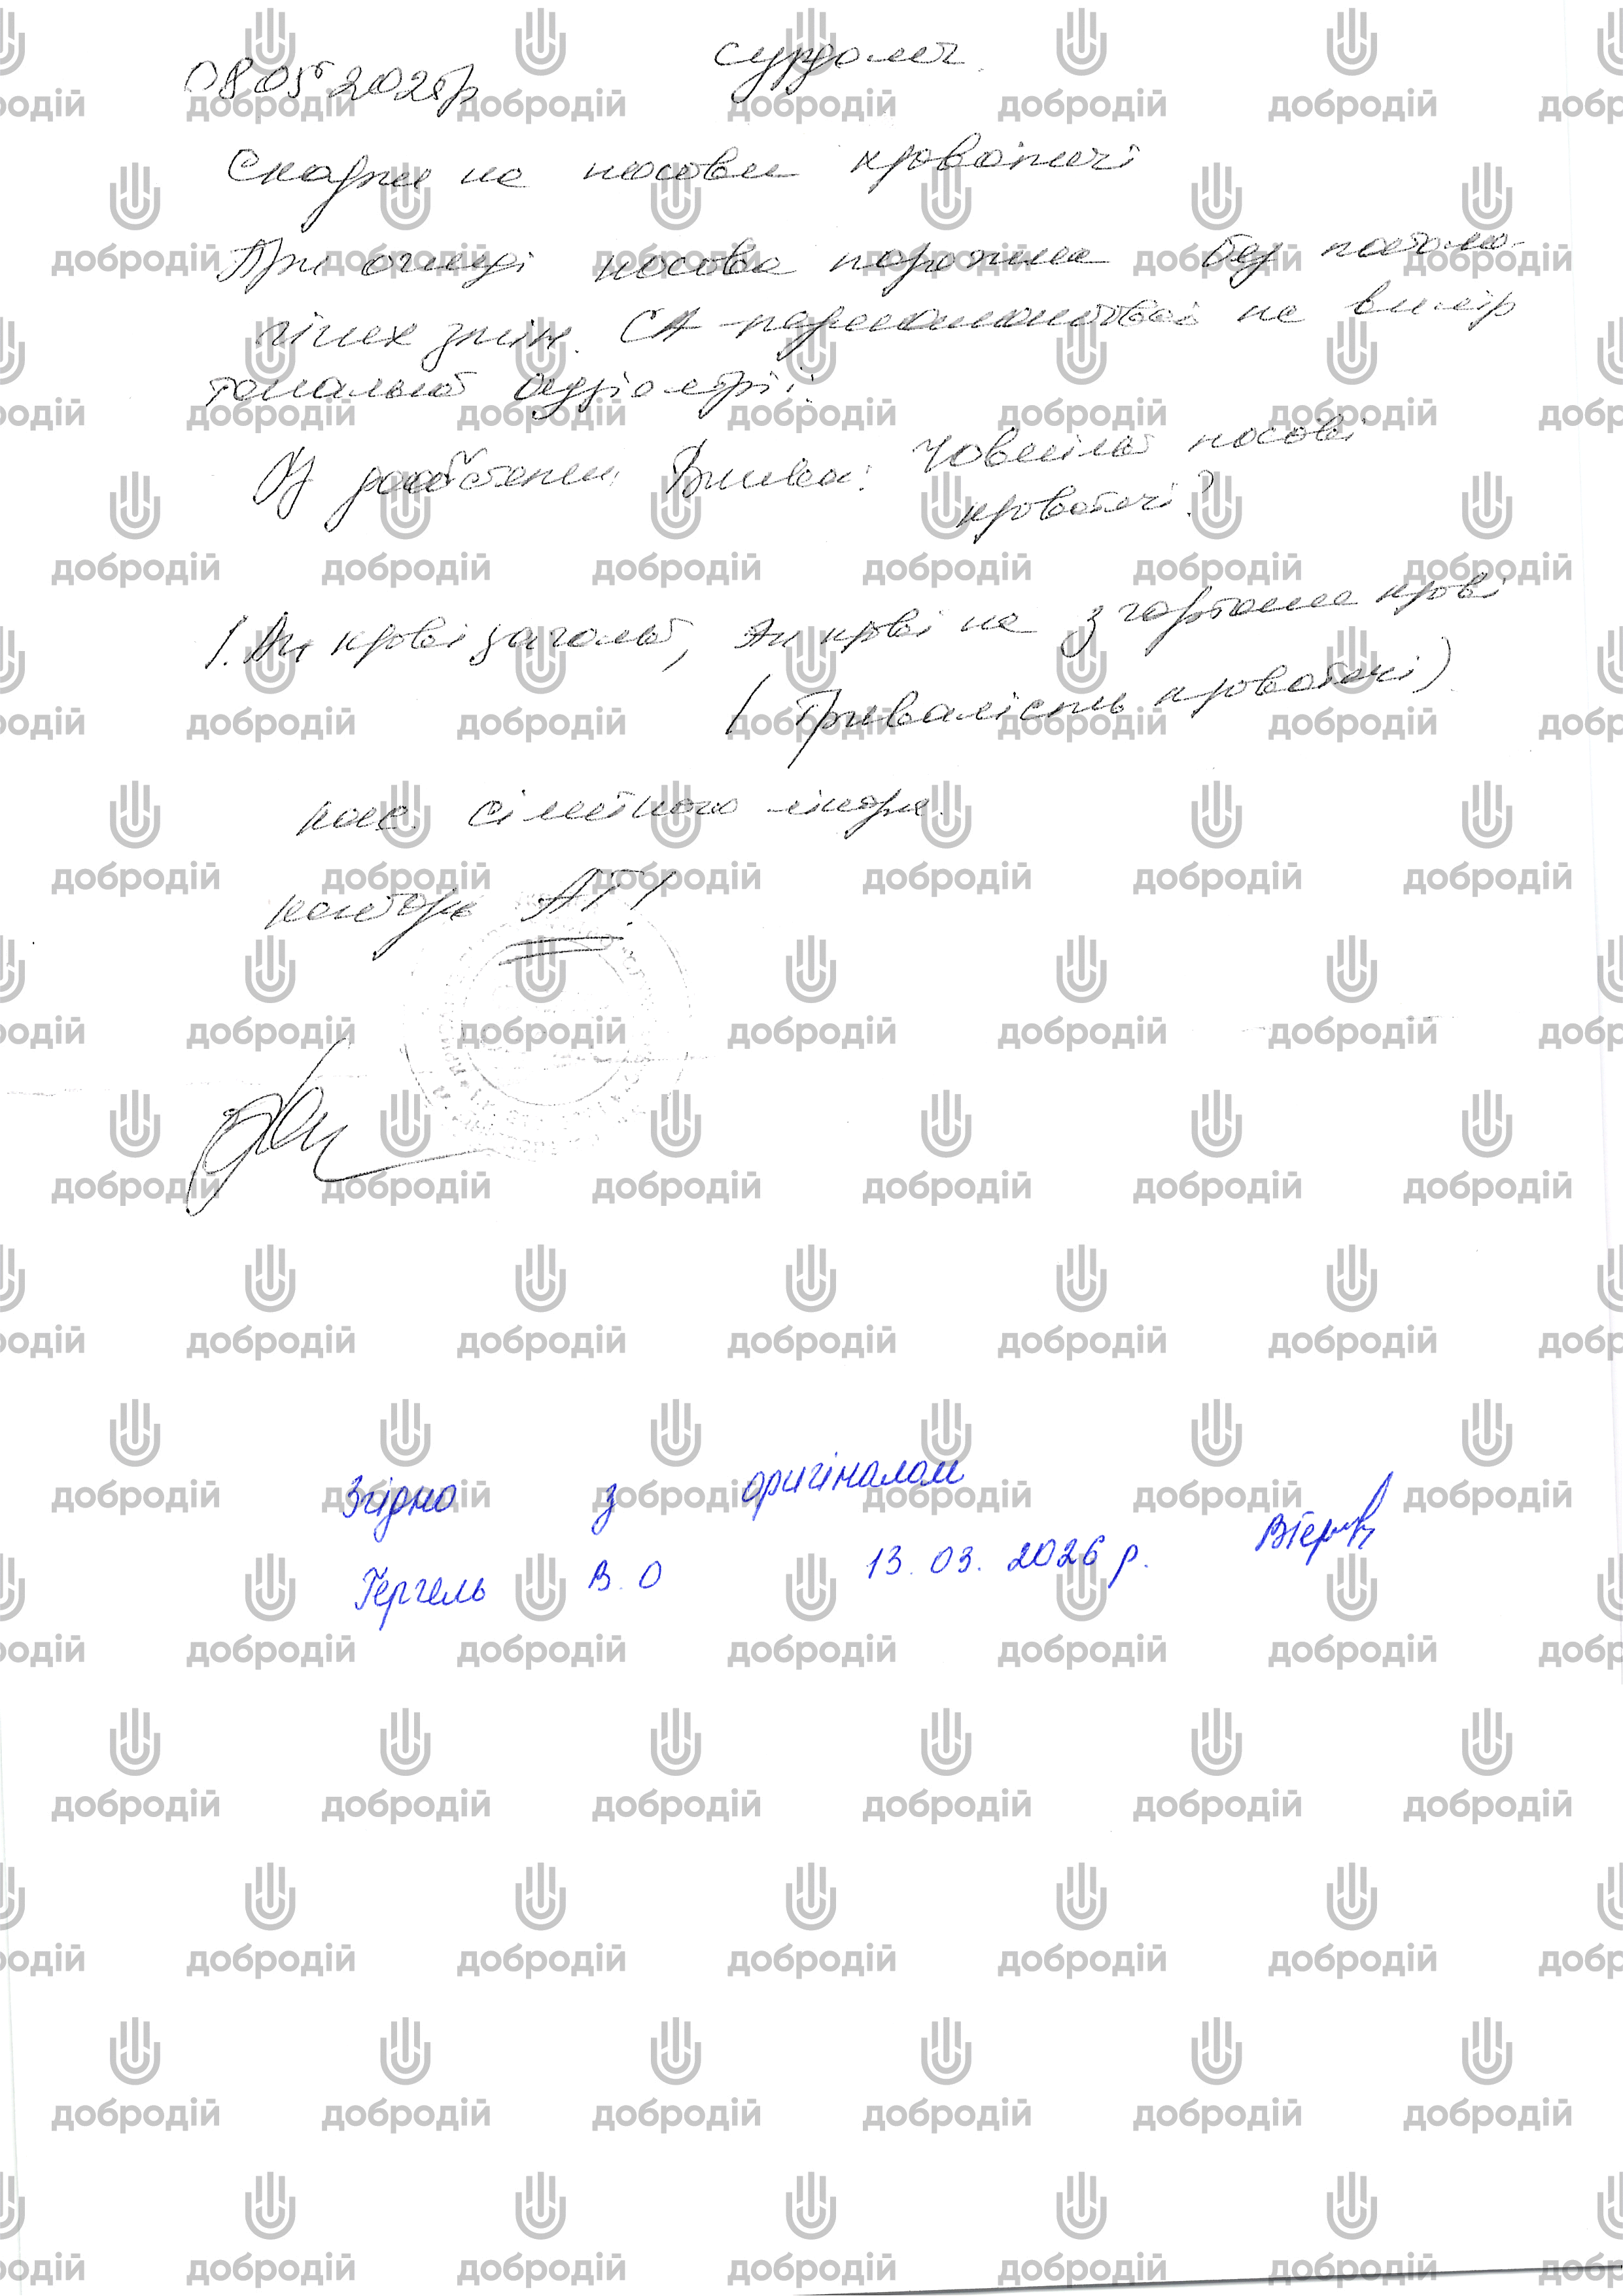 08 05 2025р сурдолог
Скарги на носові кровотечі
При огляді носова порожнина без патоло-
гічних змін. СА - на вимір
тональної аудіометрії:
З Зовнішні носові
кровотечі?
1. Ан крові загальний, Ан крові на згортання крові
(тривалість кровотечі)
конс. сімейного лікаря.
контроль АТ!
Згідно з оригіналом
Гергель В.О 13.03.2026 р.
добродій